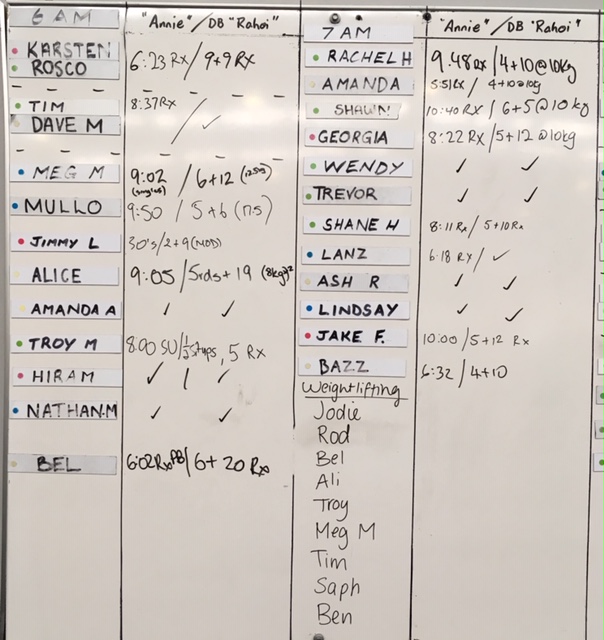 6 AM "Annie"/DB "Rahoi"
KARSTEN
ROSCO 6:23 Rx/9+9 Rx
TIM 8:37 Rx /
DAVE M ✓
MEG M 9:02 (singles) / 6+12 (12.5kg)
MULLO 9:50 / 5+6 (17.5)
JIMMY L 30's/2+9 (MOD)
ALICE 9:05/5rds+19 (8kg)
AMANDA A ✓ ✓
TROY M 8:00 SU/ , 5 Rx
HIRAM ✓ | ✓
NATHAN.M ✓ ✓
BEL 6:02Rx PB/6+20 Rx
7 AM "Annie"/DB "Rahoi"
RACHEL H 9.48 Rx/4+10@10kg
AMANDA 5:51Rx/ 4+10@10kg
SHAWN 10:40 Rx/ 6+5@10kg
GEORGIA 8:22 Rx/5+12 @10kg
WENDY ✓ ✓
TREVOR ✓ ✓
SHANE H 8:11 Rx/ 5+10 Rx
LANZ 6:18 RX/ ✓
ASH R ✓ ✓
LINDSAY ✓ ✓
JAKE F. 10:00/5+12 Rx
BAZZ 6:32/4+10
Weightlifting
Jodie
Rod
Bel
Ali
Troy
Meg M
Tim
Saph
Ben